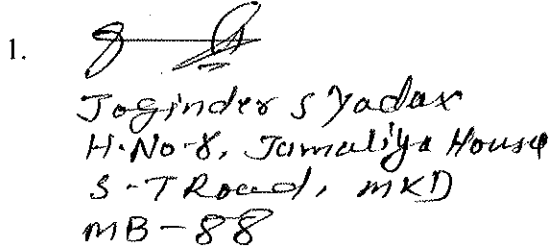 1.
Joginder S Yadav
H.No-8, Jamaliya House
S-T Road, MKD
MB-88